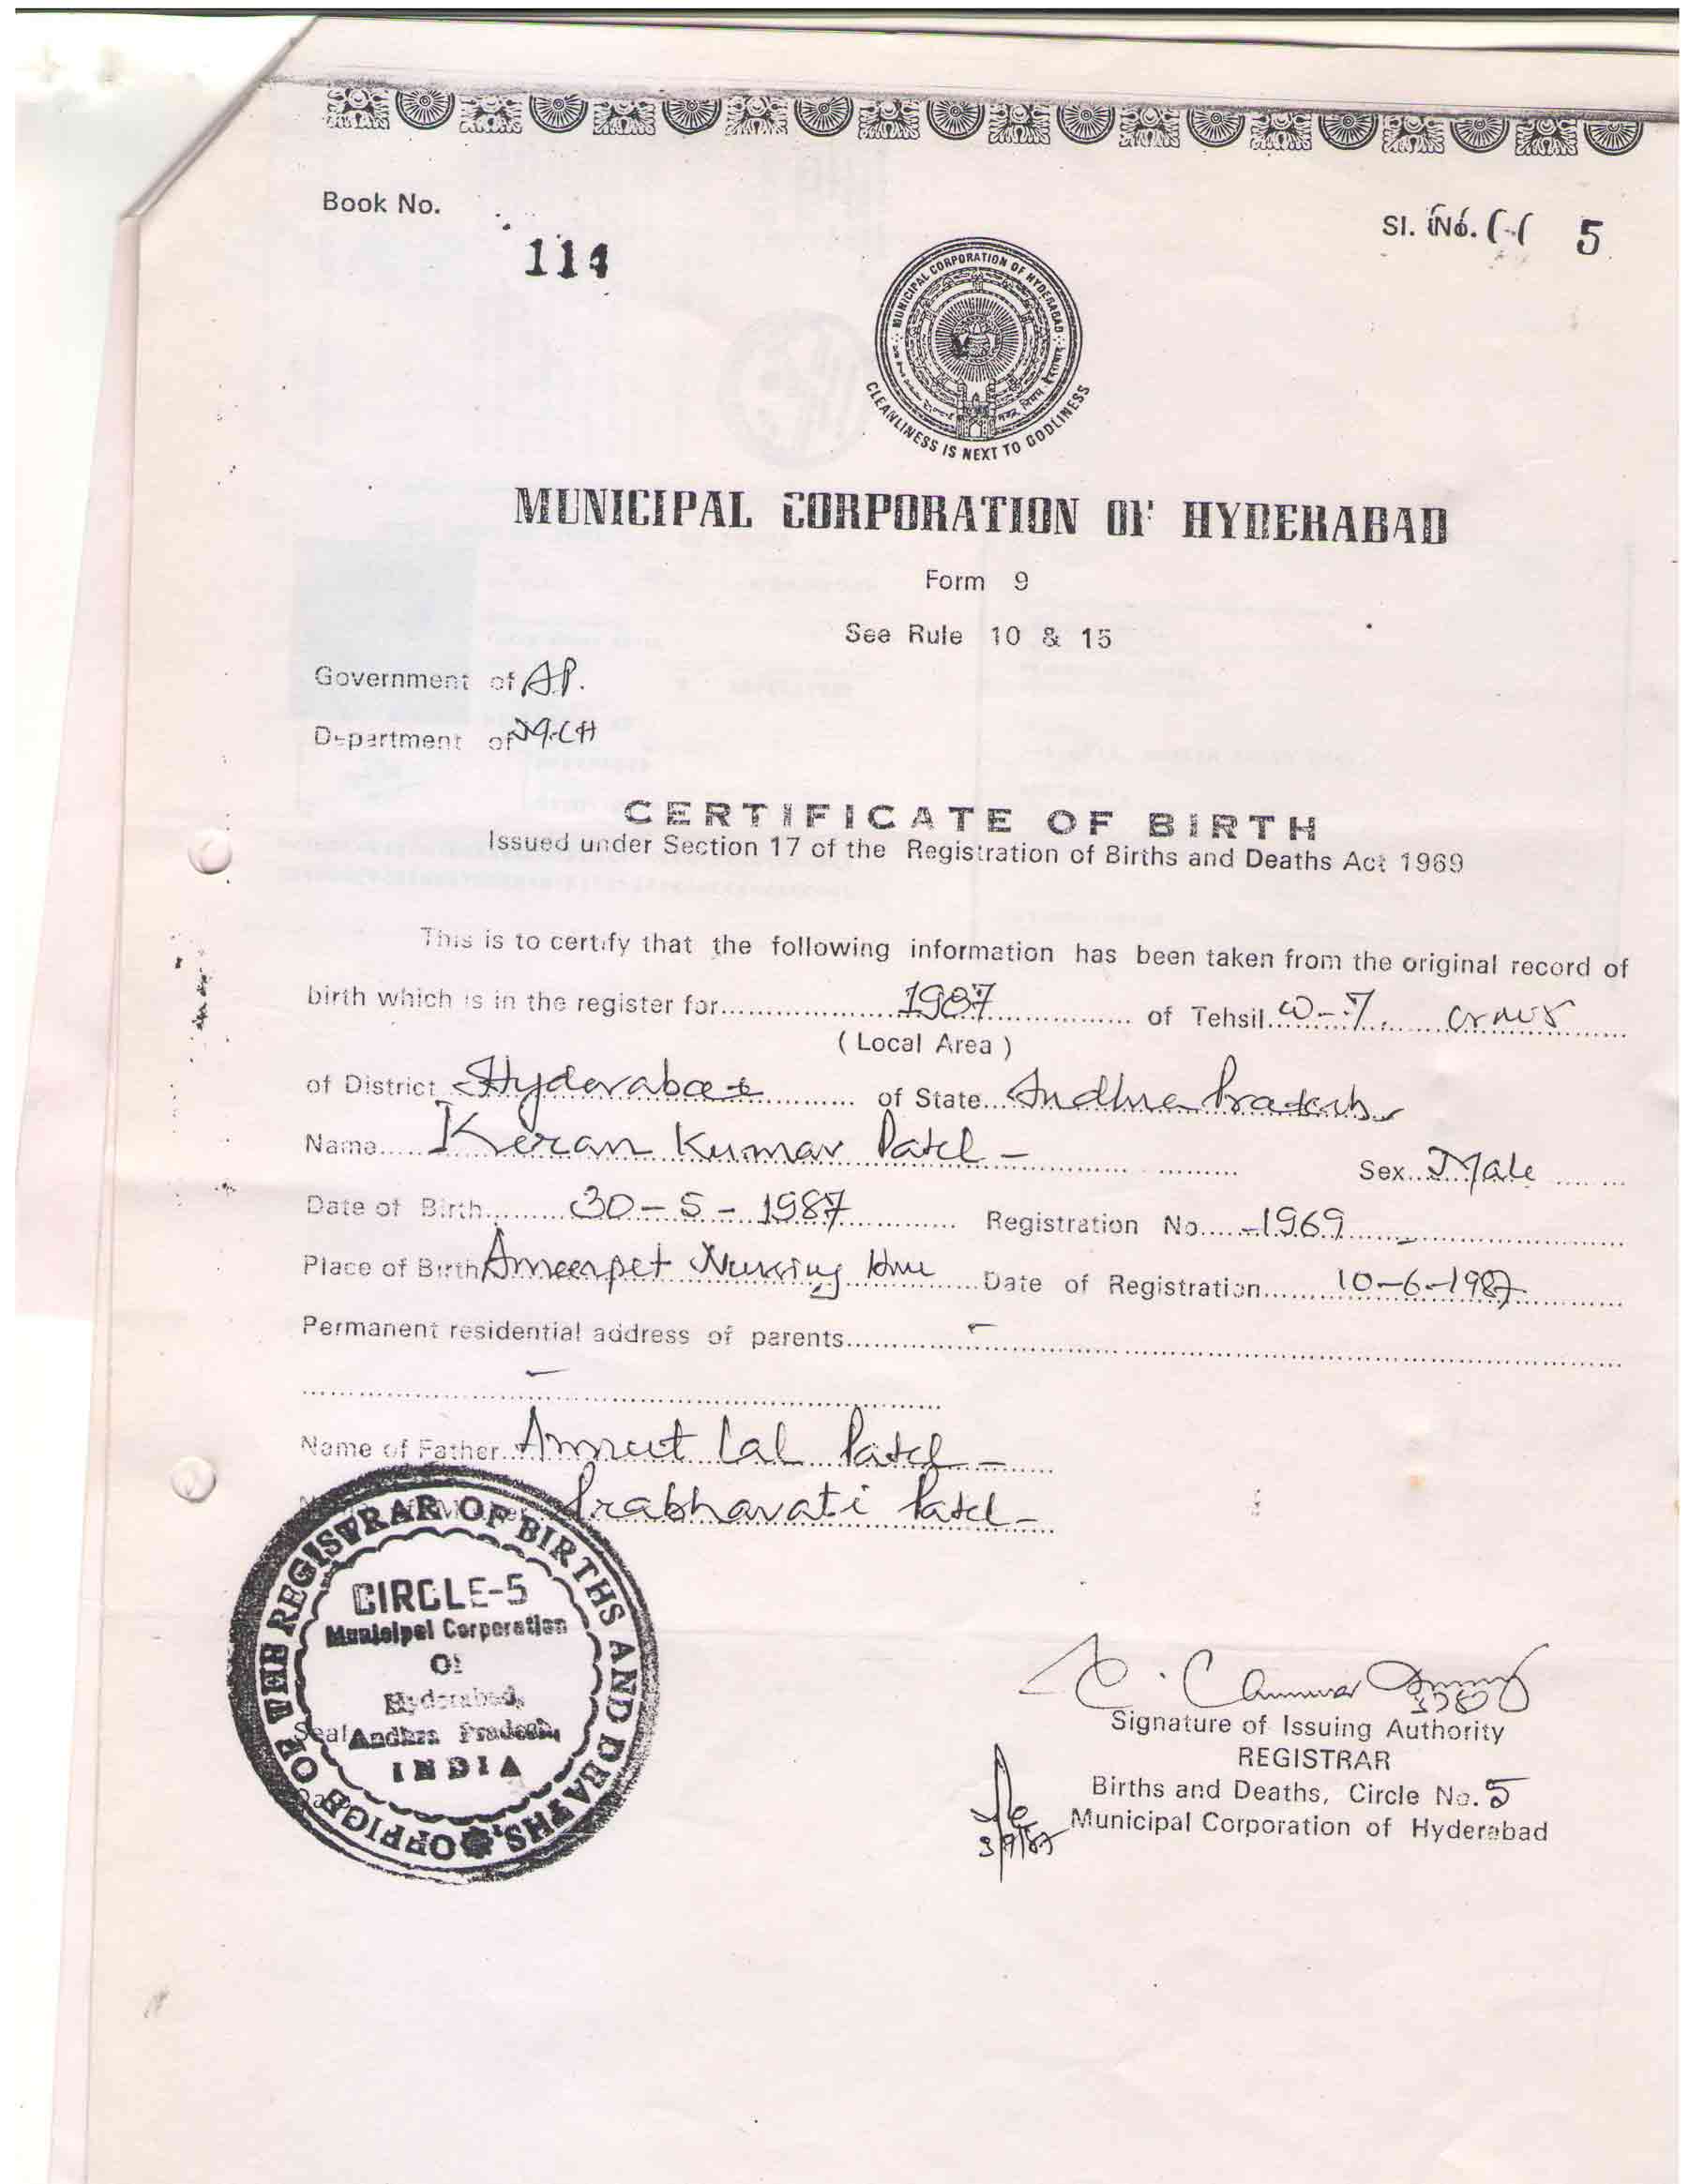 Book No.
114
Sl. No. 5
MUNICIPAL CORPORATION OF HYDERABAD
CLEANLINESS IS NEXT TO GODLINESS
MUNICIPAL CORPORATION OF HYDERABAD
Form 9
See Rule 10 & 15
Government of A.P.
Department of M.C.H
CERTIFICATE OF BIRTH
Issued under Section 17 of the Registration of Births and Deaths Act 1969
This is to certify that the following information has been taken from the original record of
birth which is in the register for 1987 of Tehsil W-7.
( Local Area )
of District Hyderabad of State Andhra Pradesh
Name Kiran Kumar Patel - Sex Male
Date of Birth 30-5-1987 Registration No. 1969
Place of Birth Ameerpet Nursing Home Date of Registration 10-6-1987
Permanent residential address of parents -
-
Name of Father Amrut Lal Patel -
Prabhavati Patel -
OFFICE OF THE REGISTRAR OF BIRTHS AND DEATHS,
CIRCLE-5
Municipal Corporation
Of
Hyderabad,
Seal Andhra Pradesh,
INDIA
Signature of Issuing Authority
REGISTRAR
Births and Deaths, Circle No. 5
Municipal Corporation of Hyderabad
3/9/87